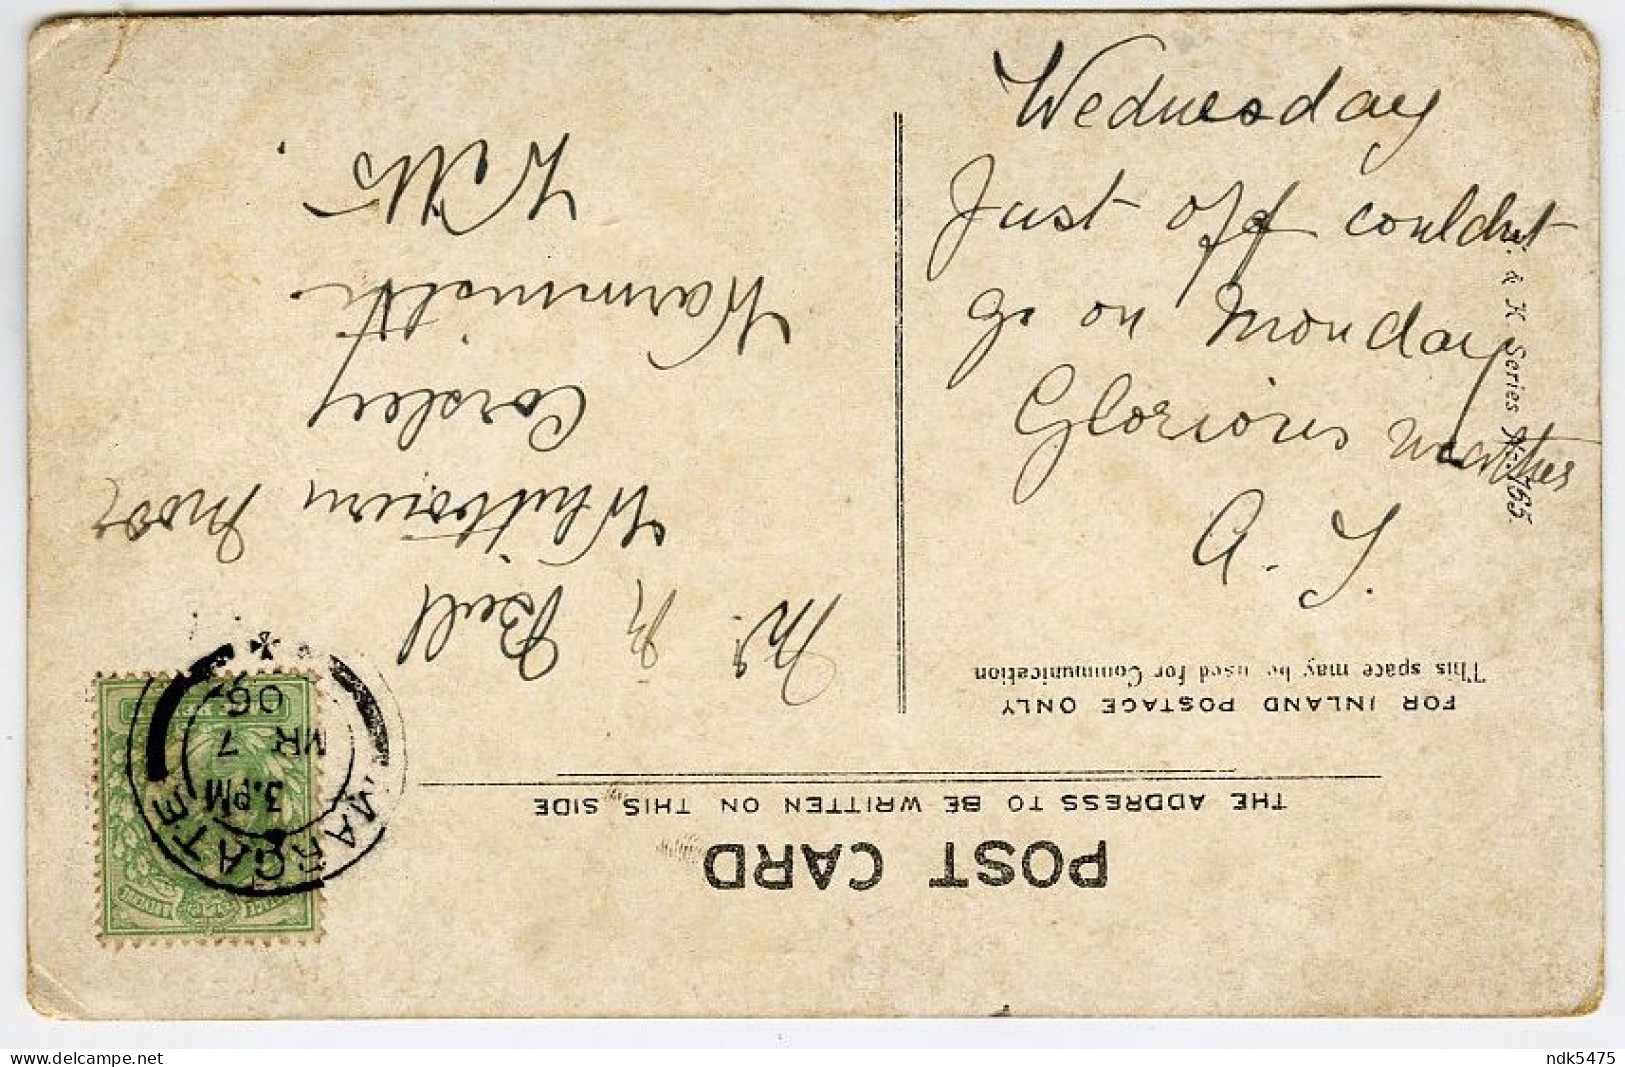 POST CARD
THE ADDRESS TO BE WRITTEN ON THIS SIDE
FOR INLAND POSTAGE ONLY
This space may be used for Communication
MARGATE
3.PM
MR 7
06
Wednesday
Just off couldnt
go on Monday
Glorious weather
A. S.
& K Series No 755.
Bull
Whitbourn Moor
Corsley
Warminster
Wilts.
delcampe.net
ndk5475